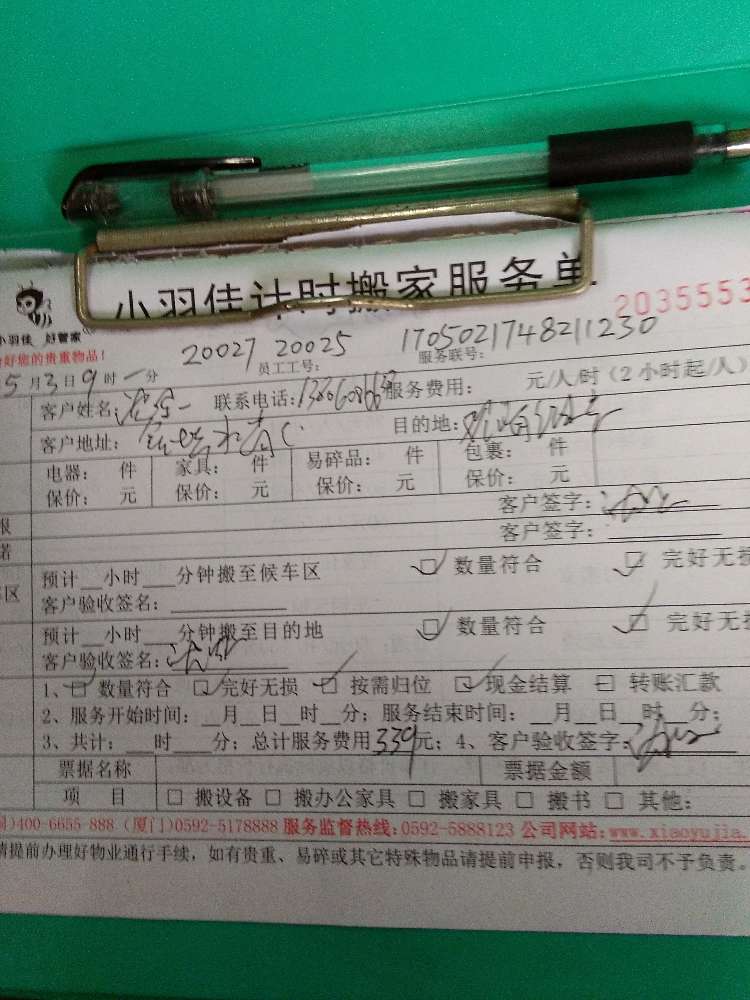 小羽佳计时搬家服务单
2035553
小羽佳 好管家
好您的贵重物品!
20027 20025 1705021748211230
员工工号: 服务联号:
5月3日9时一分
客户姓名: 联系电话: 服务费用: 元/人/时(2小时起/人)
客户地址: 目的地:
电器: 件 家具: 件 易碎品: 件 包裹: 件
保价: 元 保价: 元 保价: 元 保价: 元
客户签字:
报 客户签字:
诺
预计__小时___分钟搬至候车区 数量符合 完好无损
区 客户验收签名:
预计__小时___分钟搬至目的地 数量符合 完好无损
客户验收签名:
1、数量符合 完好无损 按需归位 现金结算 转账汇款
2、服务开始时间:__月__日__时__分;服务结束时间:__月__日__时__分;
3、共计:___时___分;总计服务费用339元;4、客户验收签字:
票据名称 票据金额
项 目 □ 搬设备 □ 搬办公家具 □ 搬家具 □ 搬书 □ 其他:
)400-6655-888(厦门)0592-5178888 服务监督热线:0592-5888123 公司网站:www.xiaoyujia.
请提前办理好物业通行手续,如有贵重、易碎或其它特殊物品请提前申报,否则我司不予负责。